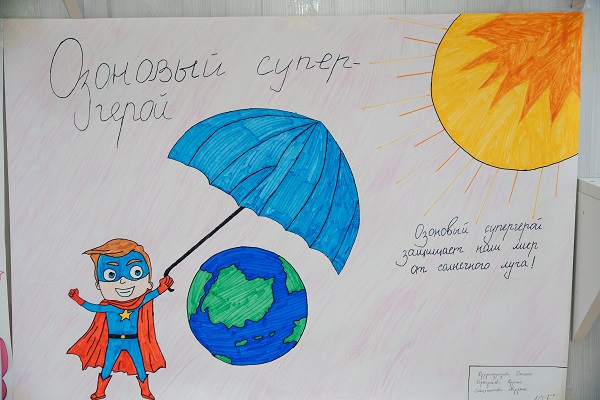 Озоновый супер-
герой
Озоновый супергерой
защищает наш мир
от солнечного луча!
10 "Б"